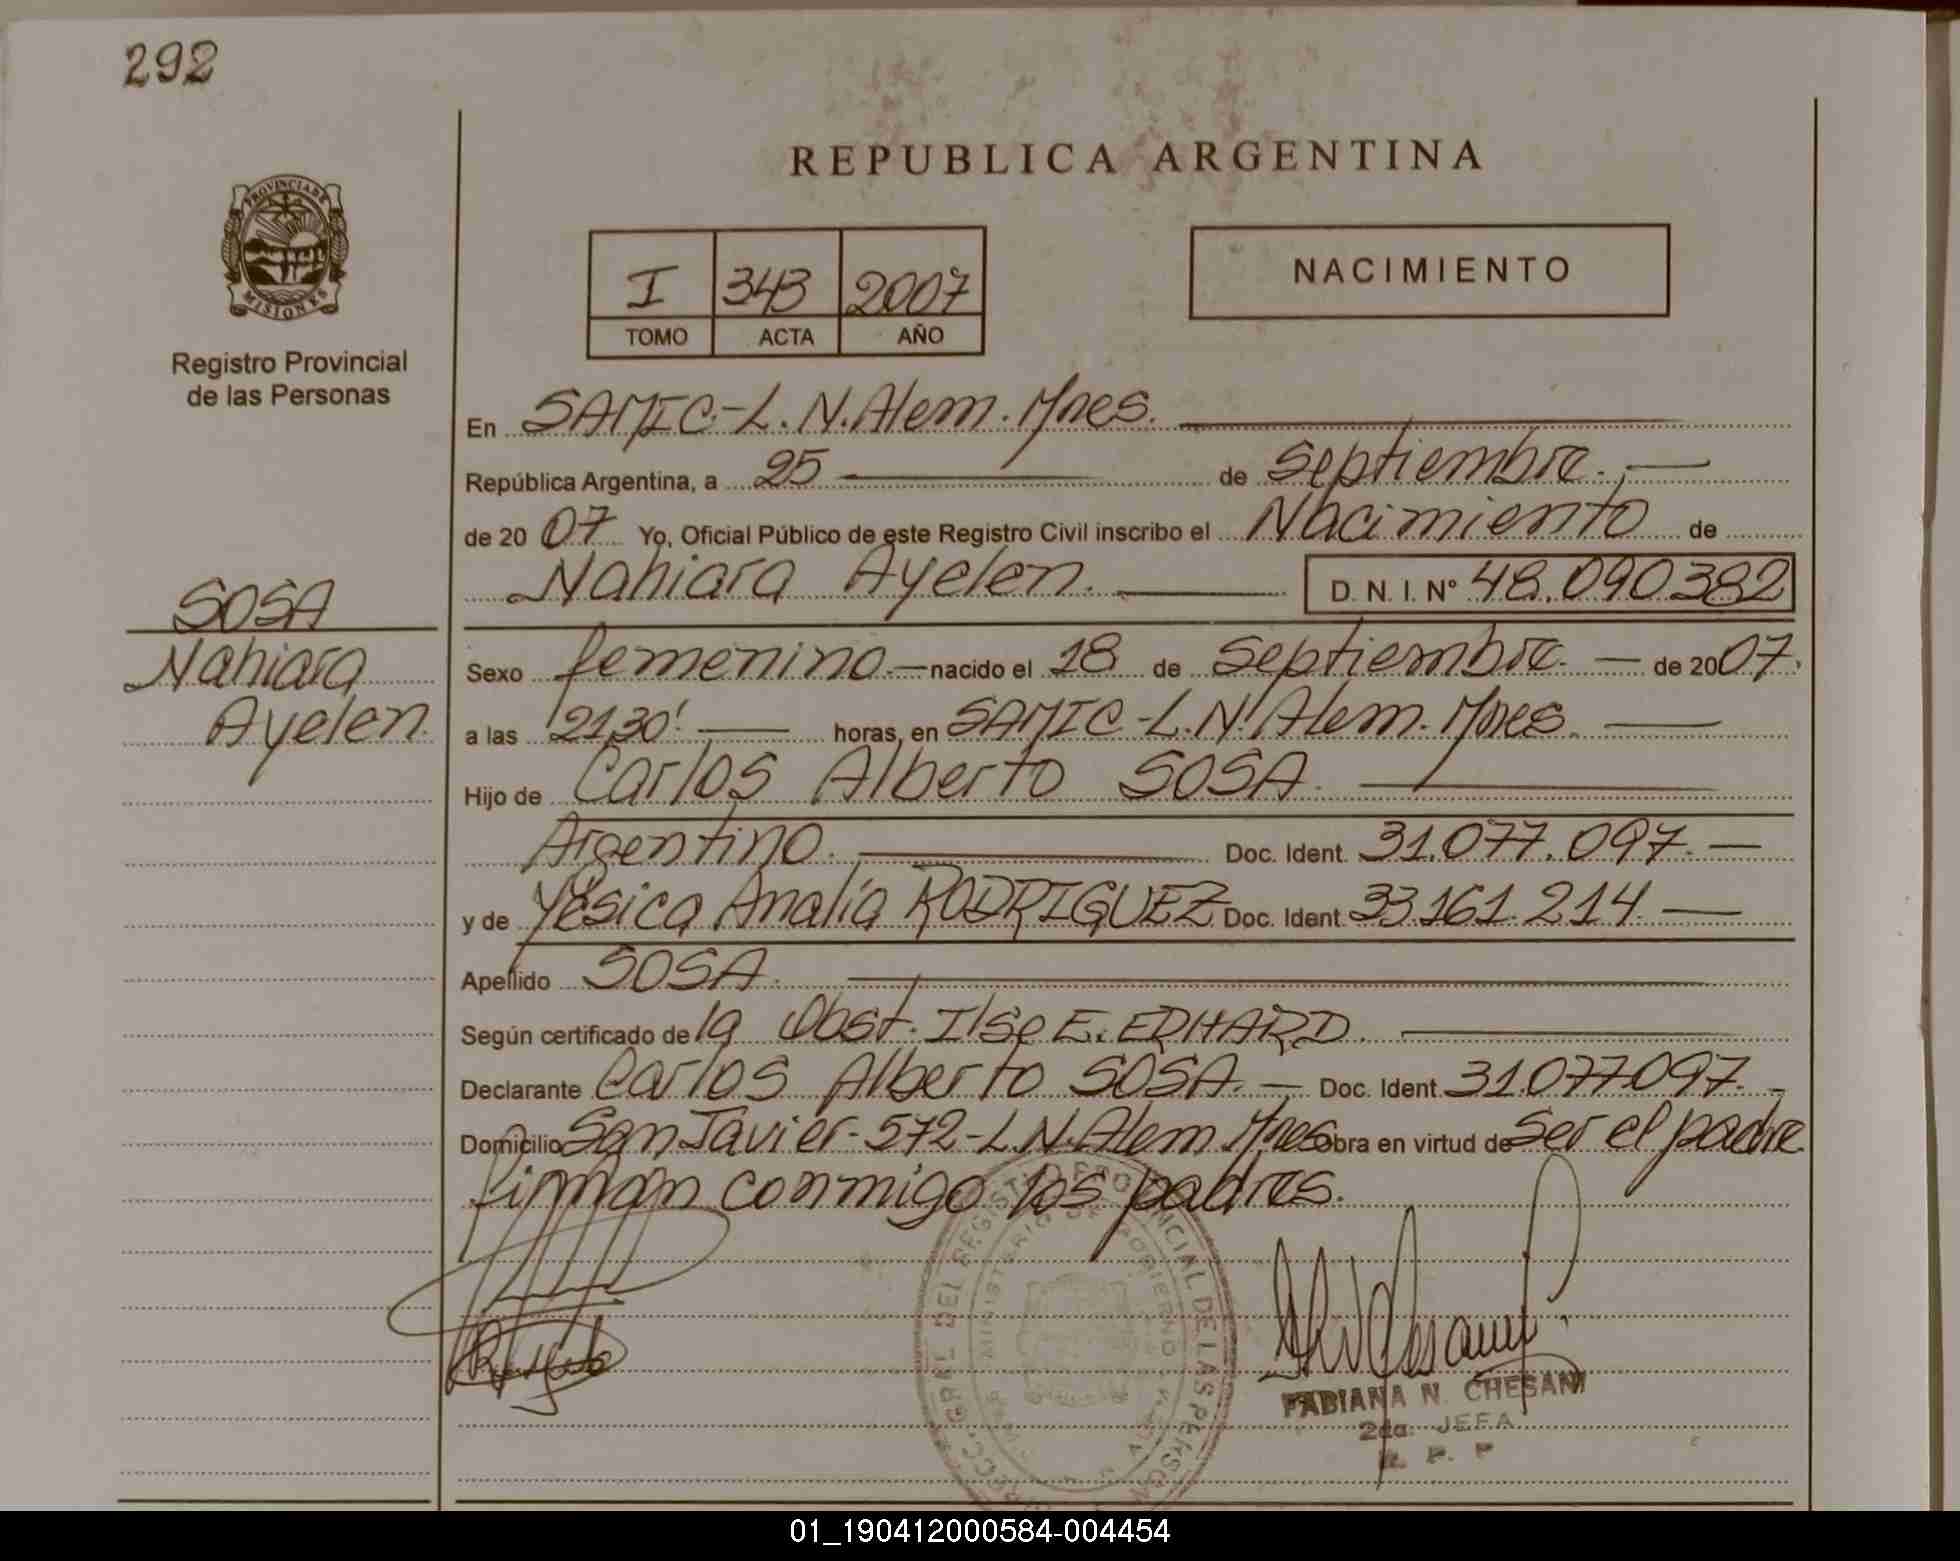 292
REPUBLICA ARGENTINA
PROVINCIA DE
MISIONES
Registro Provincial
de las Personas
I 343 2007
TOMO ACTA AÑO
NACIMIENTO
En SAMIC.-L.N.Alem.Mnes.
República Argentina, a 25 de septiembre.
de 2007 Yo, Oficial Público de este Registro Civil inscribo el Nacimiento de
Nahiara Ayelen. D. N. I. Nº 48.090.382
SOSA
Nahiara
Ayelen.
Sexo femenino.- nacido el 18 de septiembre. de 2007.
a las 21,30' horas, en SAMIC-L.N.Alem.Mnes.
Hijo de Carlos Alberto SOSA.
Argentino. Doc. Ident. 31.077.097.-
y de Yésica Analía RODRIGUEZ. Doc. Ident. 33.161.214.-
Apellido SOSA.
Según certificado de la Obst. Ilse E. ERHARD.
Declarante Carlos Alberto SOSA.- Doc. Ident. 31.077.097.-
Domicilio San Javier-572-L.N.Alem.Mnes obra en virtud de ser el padre
firman conmigo los padres.
GRAL. DEL REGISTRO PROVINCIAL DE LAS PERSON
MINISTERIO DE GOBIERNO
FABIANA N. CHESANI
2da. JEFA
R. P. P
01_190412000584-004454